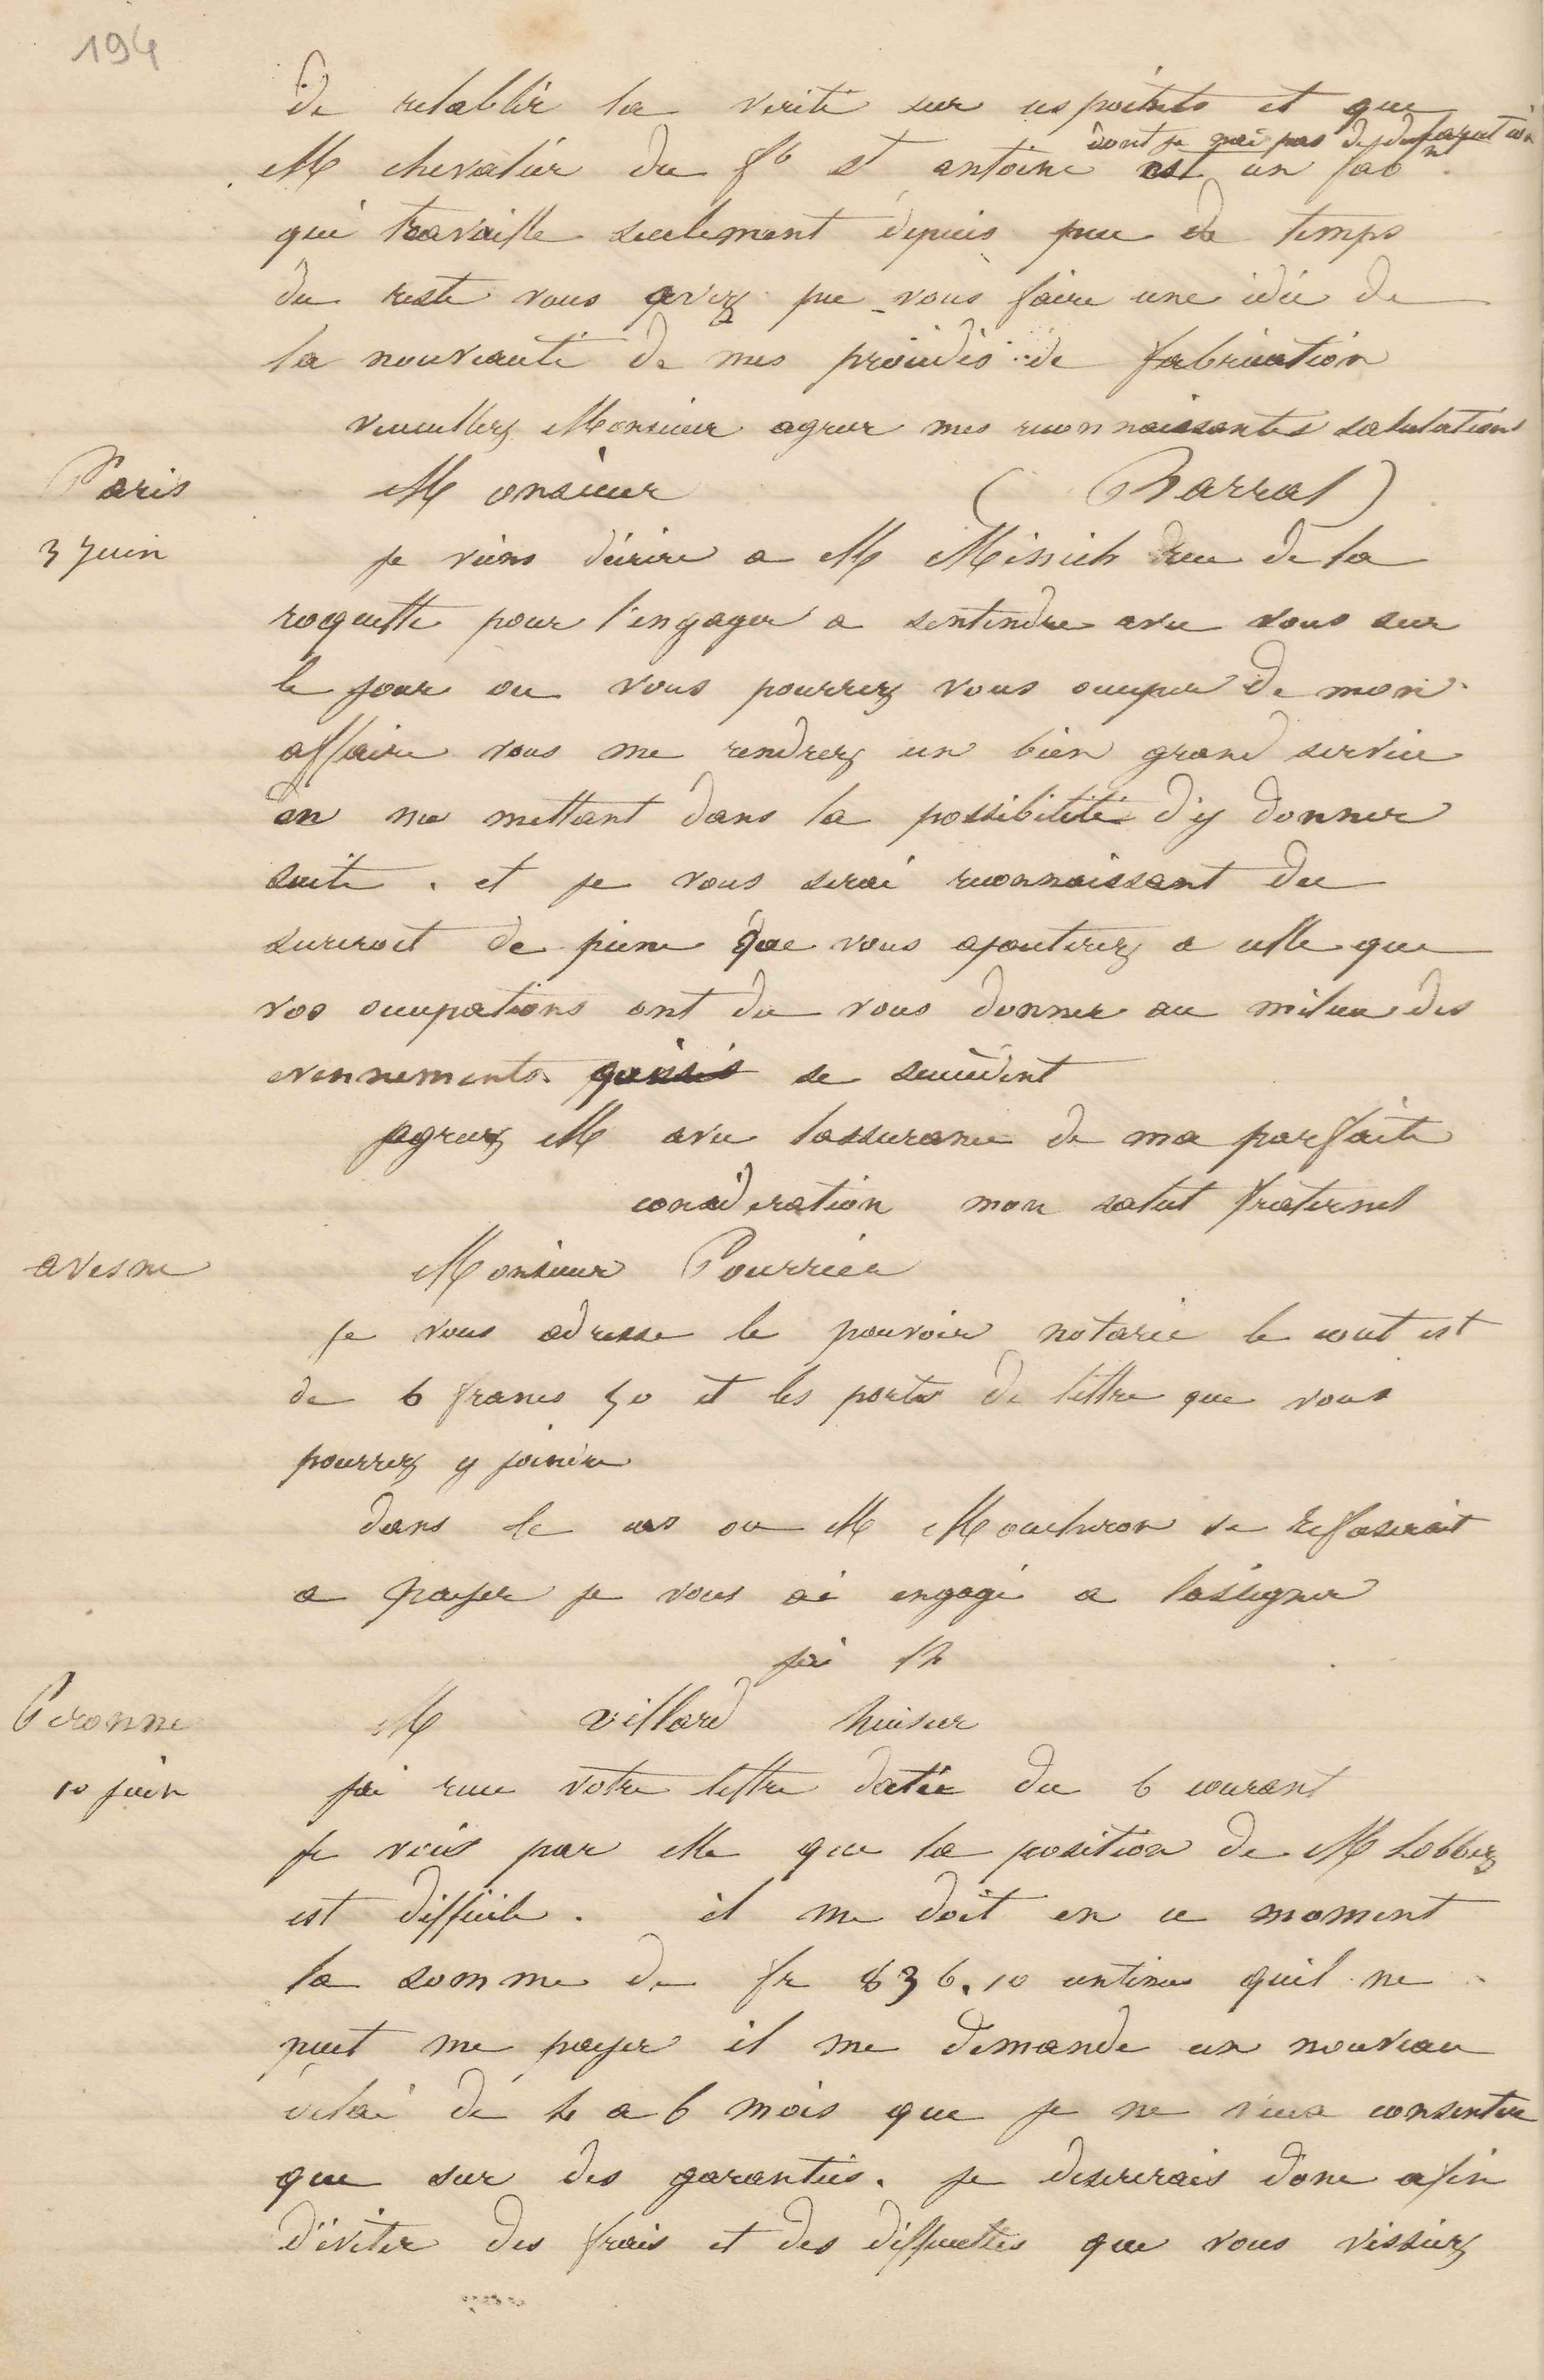 194
de retablir la verité sur ces points et que
dont je nai pas de
M chevalier du fb st antoine est un fabnt
qui travaille seulement depuis peu de temps
du reste vous avez pu vous faire une idée de
la nouveauté de mes procédés de fabrication
veuillez Monsieur agreer mes reconnaissantes salutations
Paris
Monsieur ( Barral )
3 Juin
je viens décrire a M Missich rue de la
roquette pour l'engager a sentendre avec vous sur
le jour ou vous pourrez vous occuper de mon
affaire vous me rendrez un bien grand service
en me mettant dans la possibilité d'y donner
suite. et je vous serai reconnaissant du
surcroit de piene que vous ajouterez a celle que
vos occupations ont du vous donner au milieu des
evennements se succèdent
agreez M avec lassurance de ma parfaite
consideration mon salut fraternel
avesne
Monsieur Pourrier
je vous adresse le pouvoir notarié le cout est
de 6 francs 50 et les ports de lettre que vous
pourrez y joindre
dans le cas ou M Moucheron se refuserait
a payer je vous ai engagé a lassigner
jai lh
Peronne
M villard huisier
10 juin
jai recu votre lettre datée du 6 courant
je vois par elle que la position de M Lobbez
est difficile. il me doit en ce moment
la somme de fr 836.10 centimes quil ne
peut me payer il me demande un nouveau
delai de 4 a 6 mois que je ne veux consentir
que sur des garanties. je desirerais donc afin
d'éviter des frais et des difficultés que vous vissiez